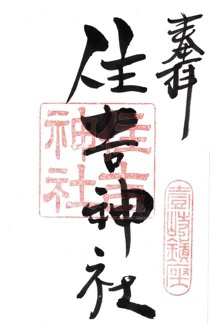 奉拝
住吉神社
住吉神社
壹岐鎮座